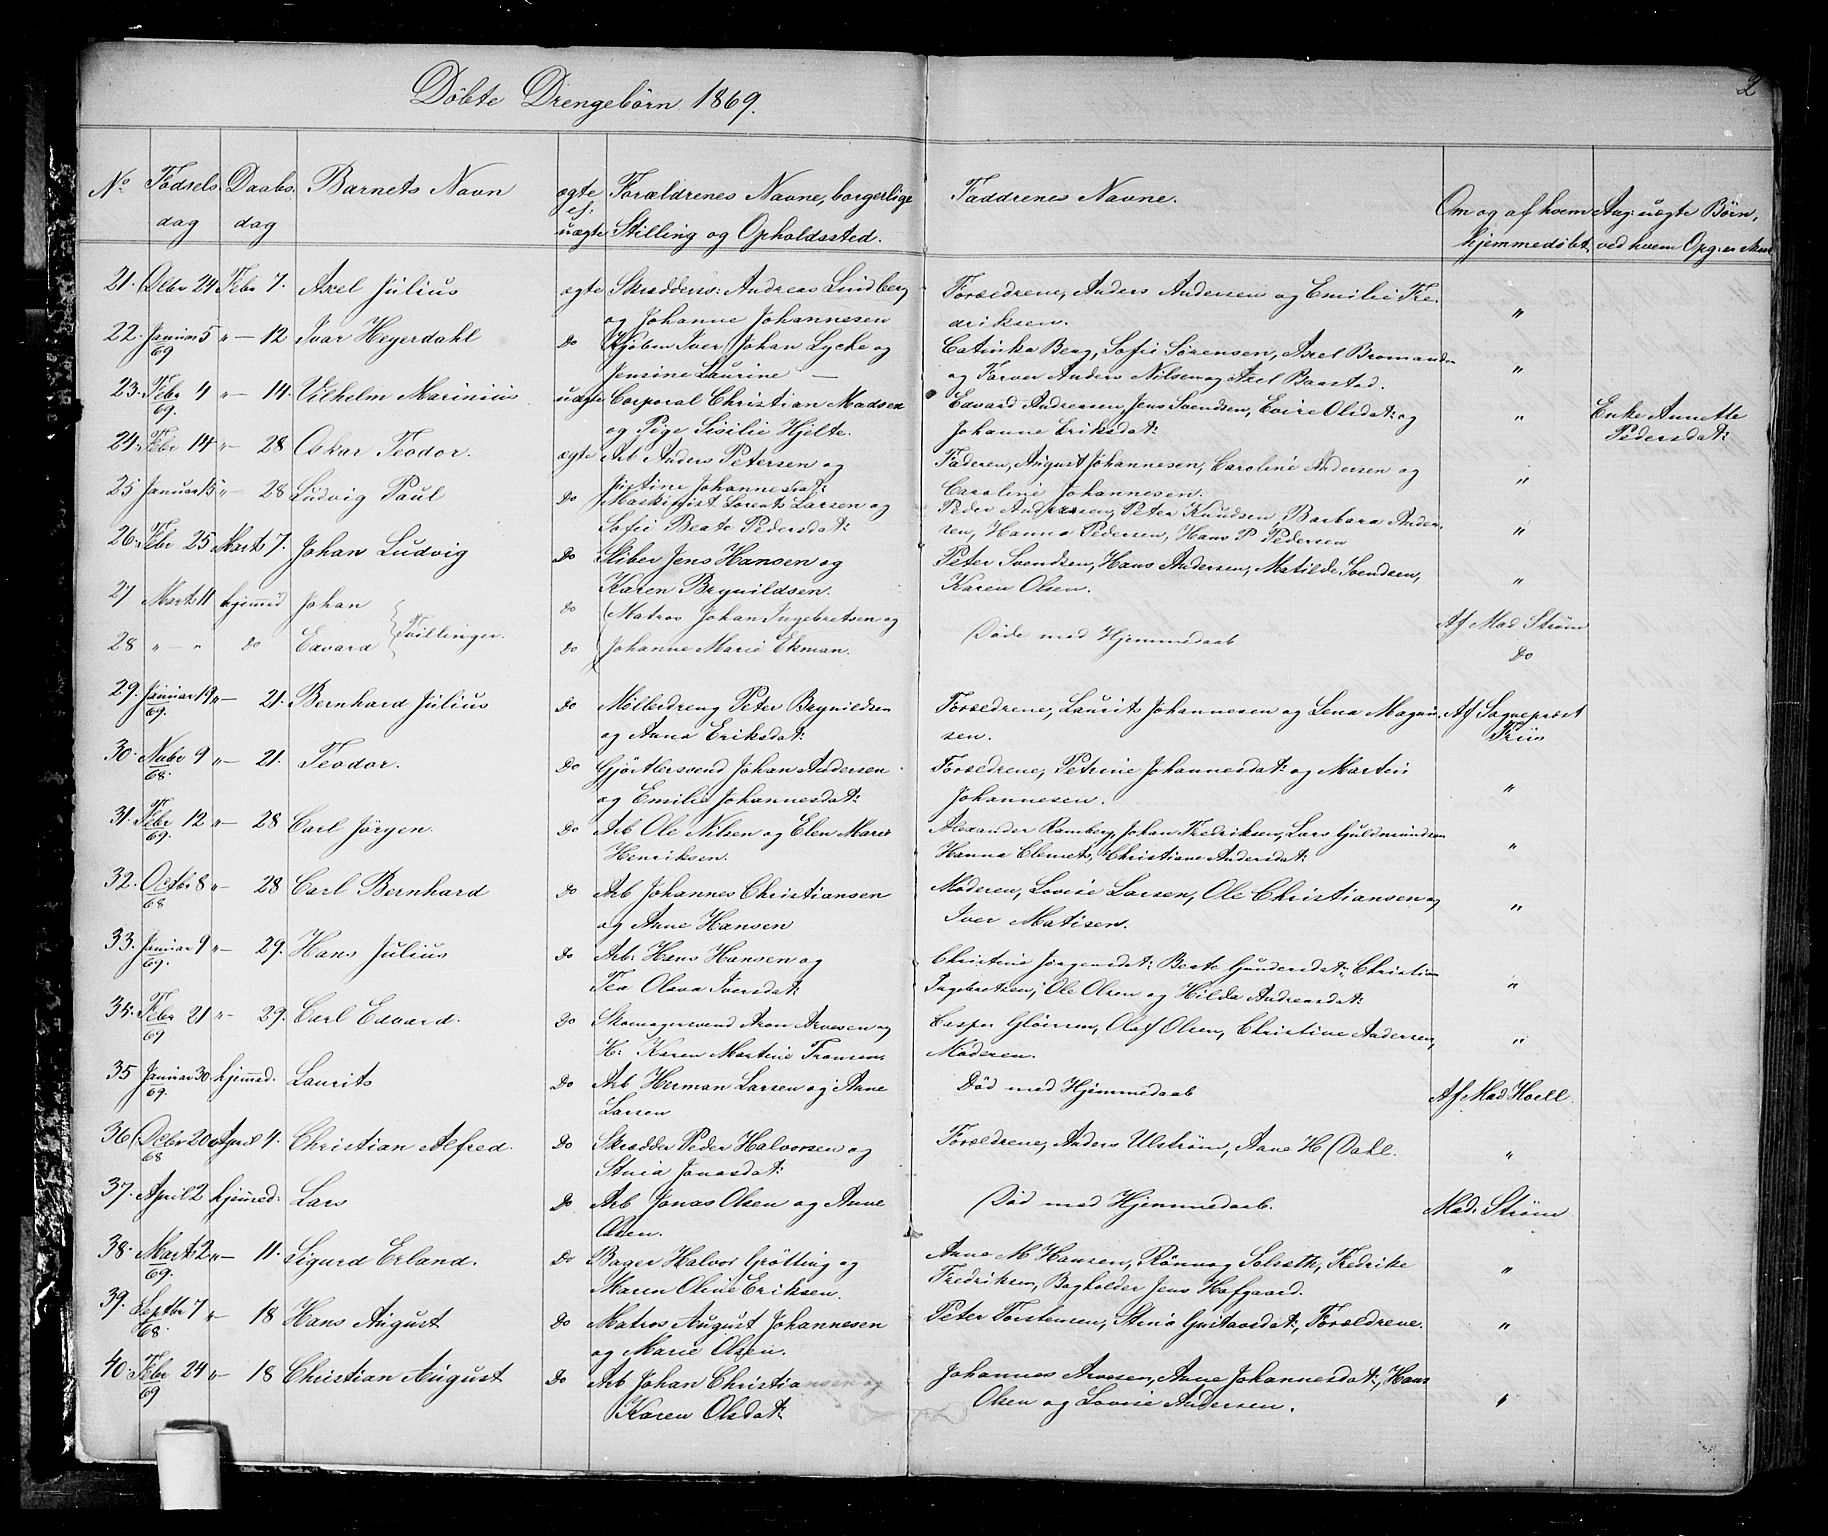 Döbte Drengebörn 1869.
2
No Födsels dag Daabs dag Barnets Navn ægte el: uægte Forældrenes Navne, borgerlige Stilling og Opholdssted. Faddrenes Navne. Om og af hvem hjemmedöbt Ang: uægte Börn, ved hvem
21. Debr 24 Febr 7. Axel Julius ægte Skræddersv: Andreas Lindberg Forældrene, Anders Andersen og Emilie Fre- "
og Johanne Johannesen driksen.
22. Januar 5 " — 12 Ivar Heyerdahl Do Kjöbm Iver Johan Lycke og Catinka Berg, Sofie Sörensen, Axel "
69 Jensine Laurine — og Farver Anders Nilsen og Axel Baastad.
23. Febr 4 " — 14. Vilhelm Marinius uægte Corporal Christian Madsen Edvard Andreasen, Jens Svendsen, Olsdat: og " Enke Annette
69. og Pige Sisilie Hjelte. Johanne Eriksdat: Pedersdat:
24. Febr 14 " 28 Oskar Teodor. ægte Arb Anders Petersen og Faderen, August Johannesen, Caroline Andersen og "
Johannesdat: Caroline Johannesen.
25 Januar 15 " — 28 Ludvig Paul Do Maskinist Lorents Larsen og Peder Andersen, Peter Knudsen, Barbara Ander- "
Sofie Beate Pedersdat: sen, Hanna Pedersen, Hans P Pedersen
26. Febr 25 Marts 7. Johan Ludvig Do Sliber Jens Hansen og Peter Svendsen, Hans Andersen, Matilde Svendsen, "
Karen Brynildsen. Karen Olsen.
27 Marts 11 hjemmed Johan Tvillinger. Do Matros Johan Ingebretsen og Döde med Hjemmedaab Af Mad Ström
28 " — " do Edvard Do Johanne Marie Ekman. Do
29. Januar 19 " — 21. Bernhard Julius Do Möllerdreng Peter Brynildsen Forældrene, Laurits Johannesen og Lena Magnu- Af Sognepræst
69. og Anna Eriksdat: sen. Friis
30. Nvbr 9 " — 21. Teodor. Do Gjörtlersvend Johan Andersen Forældrene, Petrine Johannesdat: og Martin "
68. og Emilie Johannesdat: Johannesen.
31. Febr 12 " — 28 Carl Jörgen. Do Arb Ole Nilsen og Elen Marie Alexander Ramberg, Johan Fredriksen, Lars Guldmundsen "
69. Henriksen. Hanna Clemets, Christiane Andersdat:
32. Octbr 8 " — 28 Carl Bernhard Do Arb Johannes Christiansen Moderen, Lovise Larsen, Ole Christiansen og "
68 og Anne Hansen Iver Matisen.
33. Januar 9 " — 29. Hans Julius Do Arb: Hans Hansen og Christine Jörgensdat: Beate Gundersdat: Christian "
69. Tea Olava Iversdat: Ingebretsen, Ole Olsen og Hilda Andreasdat:
34. Febr 21 " — 29. Carl Edvard. Do Skomagersvend Aron Arvesen og Casper Olaf Olsen, Christine Andersen, "
69 H: Karen Martine Fransen. Moderen.
35 Januar 30 hjemmed. Laurits Do Arb Herman Larsen og Anne Död med Hjemmedaab Af Mad Hoell.
69. Larsen
36 Debr 20 April 4. Christian Alfred. Do Skrædder Peder Halvorsen og Forældrene, Anders Ulström, Anne H Dahl. "
68 Stina Jonasdat:
37. April 2 hjemmed: Lars Do Arb Jonas Olsen og Anne Död med Hjemmedaab. Mad. Ström
Olsen.
38. Marts 2 " — 11. Sigurd Erland. Do Bager Halvor Grötting og Anne M Hansen, Rönnog Solseth, Fredrike "
69. Maren Oline Eriksen. Fredriksen, Bogholder Jens Hofgaard.
39. Septbr 7 " — 18 Hans August Do Matros August Johannesen Peter Torstensen, Stina Gustavsdat:, Forældrene. "
68. og Marie Olsen.
40. Febr 24 " — 18 Christian August Do Arb Johan Christiansen og Johannes Arvesen, Anne Johannesdat:, Hans "
69 Karen Olsdat: Olsen og Lovise Andersen.